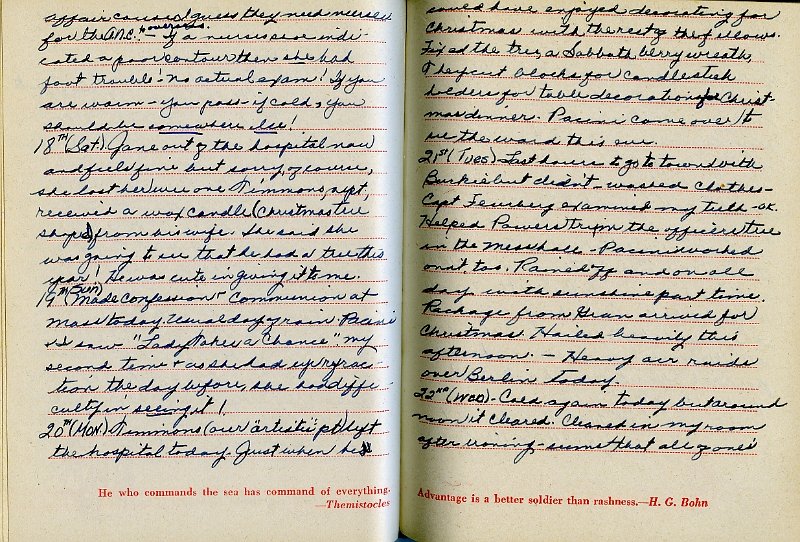 affair cause I guess they need nurses
for the A.N.C. overseas. If a nurses case indi-
cated a poor contour then she had
foot trouble - no actual exam! If you
are warm - you pass - if cold, you
should be somewhere else!
18TH (Sat) Jane out of the hospital now
and feels fine but sorry, of course,
she lost her wee one. Timmons, my pt,
received a wax candle (Christmas tree
shape) from his wife. She said she
was going to see that he had a tree this
year! He was cute in giving it to me.
19TH (Sun) Made confession & Communion at
mass today. Usual day of rain. Pacini
& I saw "Lady Takes a Chance" my
second time & as she had eye refrac-
tion the day before, she had diffi-
culty in seeing it!
20TH (MON) Timmons (our "artistic" pt) left
the hospital today. Just when he
He who commands the sea has command of everything.
—Themistocles
could have enjoyed decorating for
Christmas with the rest of the fellows.
Fixed the tree, a Sabbath berry wreath,
They cut blocks for candlestick
holders for table decoration for Christ-
mas dinner. Pacini came over to
see the ward this eve.
21ST (TUES) - Last hours to go to town with
Burkie but didn't - washed clothes -
Capt Feinberg examined my teeth - OK.
Helped Powers trim the officers tree
in the Mess hall - Pacini worked
on it too. Rained off and on all
day with sunshine part time.
Package from Jean arrived for
Christmas. Hailed heavily this
afternoon. - Heavy air raids
over Berlin today.
22ND (WED) - Cold again today but around
noon it cleared. Cleaned in my room
after ironing - seems that all of one's
Advantage is a better soldier than rashness.—H. G. Bohn